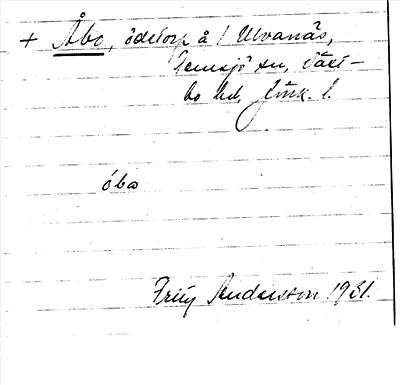 + Åbo, ödetorp å 1 Ulvanäs,
Femsjö sn, Väst-
bo hd, Jönk. l.
óbo
Frity Andersson 1931.